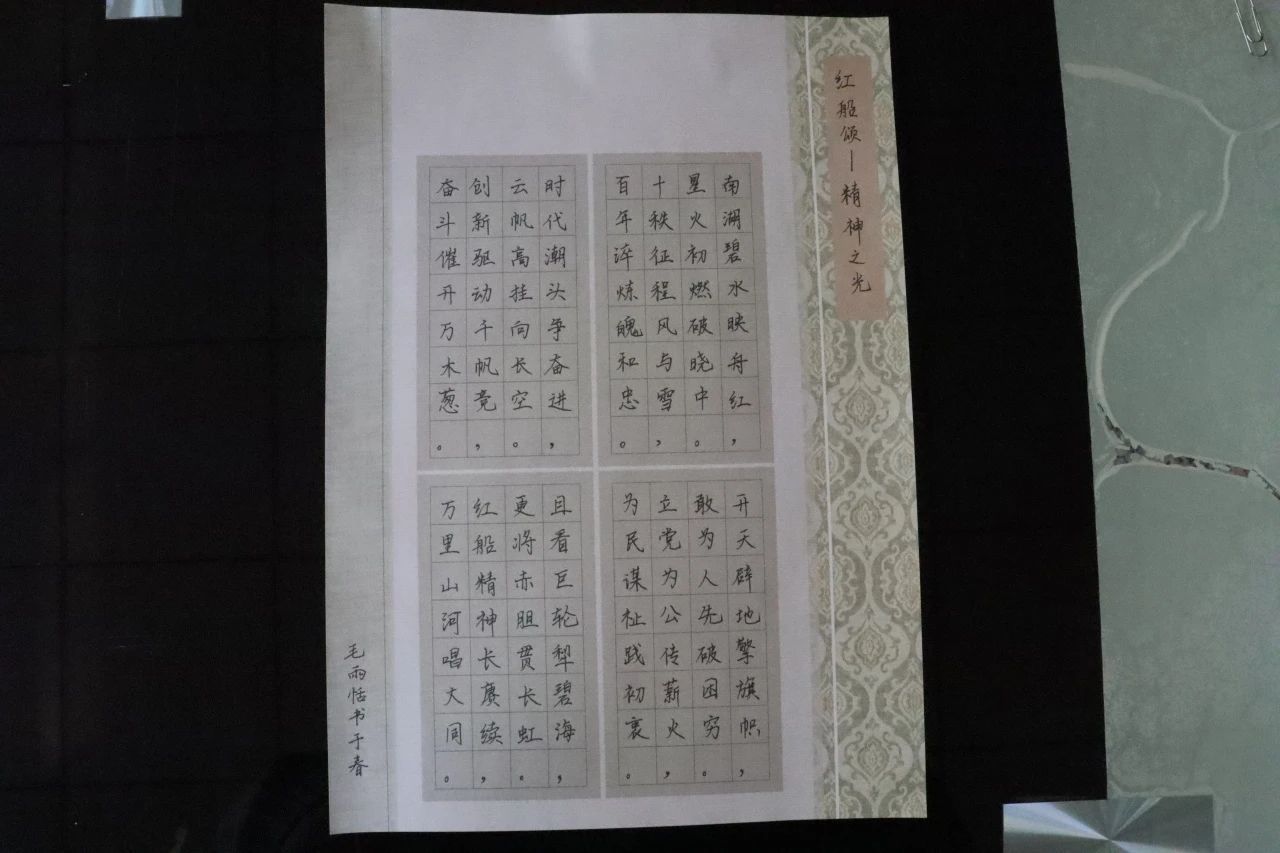 红船颂—精神之光
南湖碧水映舟红，
星火初燃破晓中。
十秩征程风与雪，
百年淬炼魄和忠。
开天辟地擎旗帜，
敢为人先破困穷。
立党为公传薪火，
为民谋祉践初衷。
时代潮头争奋进，
云帆高挂向长空。
创新驱动千帆竞，
奋斗催开万木葱。
且看巨轮犁碧海，
更将赤胆贯长虹。
红船精神长赓续，
万里山河唱大同。
毛雨恬书于春